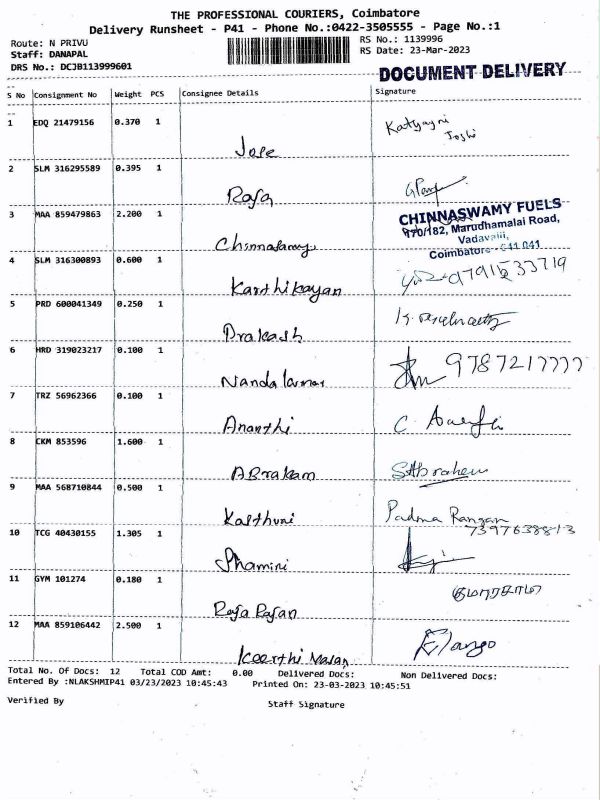 THE PROFESSIONAL COURIERS, Coimbatore
Delivery Runsheet - P41 - Phone No.:0422-3505555 - Page No.:1
Route: N PRIVU
RS No.: 1139996
Staff: DANAPAL
RS Date: 23-Mar-2023
DRS No.: DCJB113999601
DOCUMENT DELIVERY
S No Consignment No Weight PCS Consignee Details Signature
1 EDQ 21479156 0.370 1 Katyayni
Joshi
Jose
2 SLM 316295589 0.395 1
Raja
3 MAA 859479863 2.200 1 CHINNASWAMY FUELS
170/182, Marudhamalai Road,
Vadavalli,
Coimbatore - 641 041
Chinnaswamy
4 SLM 316300893 0.600 1
Karthikayan
5 PRD 600041349 0.250 1
Prakash
6 HRD 319023217 0.100 1 9787217777
Nandakumar
7 TRZ 56962366 0.100 1 C.
Ananthi
8 CKM 853596 1.600 1 Abraham
ABraham
9 MAA 568710844 0.500 1 Padma Rangan
7397638813
Kasthuri
10 TCG 40430155 1.305 1
Shamini
11 GYM 101274 0.180 1
Raja Rajan
12 MAA 859106442 2.500 1 Elango
Keerthi Masan
Total No. Of Docs: 12 Total COD Amt: 0.00 Delivered Docs: Non Delivered Docs:
Entered By :NLAKSHMIP41 03/23/2023 10:45:43 Printed On: 23-03-2023 10:45:51
Verified By
Staff Signature